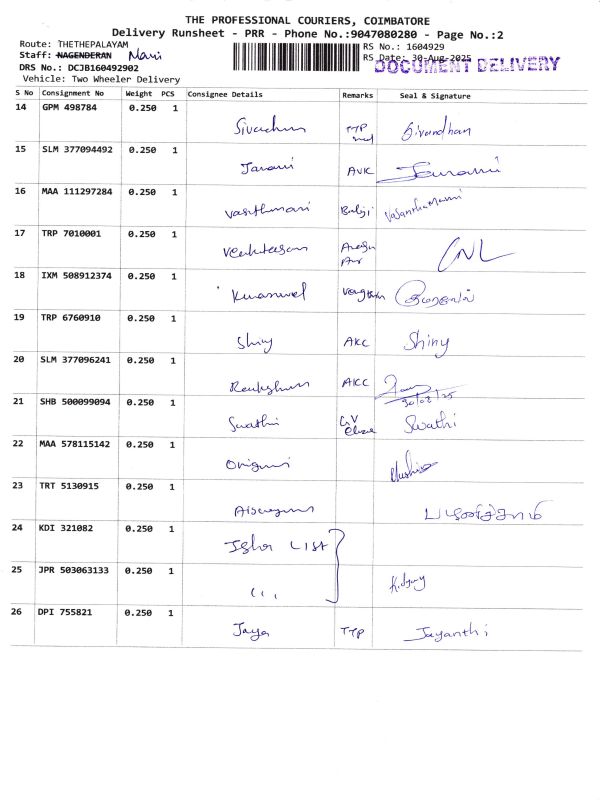 THE PROFESSIONAL COURIERS, COIMBATORE
Delivery Runsheet - PRR - Phone No.:9047080280 - Page No.:2
Route: THETHEPALAYAM
Staff: NAGENDERAN Mani
DRS No.: DCJB160492902
Vehicle: Two Wheeler Delivery
RS No.: 1604929
RS Date: 30-Aug-2025
DOCUMENT DELIVERY
S No Consignment No Weight PCS Consignee Details Remarks Seal & Signature
14 GPM 498784 0.250 1 TTP Sivandhan
15 SLM 377094492 0.250 1 Janani AVK
16 MAA 111297284 0.250 1 Vasanthamani
17 TRP 7010001 0.250 1
18 IXM 508912374 0.250 1
19 TRP 6760910 0.250 1 Shiny AKC Shiny
20 SLM 377096241 0.250 1 AKCC 30/08/25
21 SHB 500099094 0.250 1 Swathi GV Swathi
22 MAA 578115142 0.250 1
23 TRT 5130915 0.250 1
24 KDI 321082 0.250 1 Isha LIST
25 JPR 503063133 0.250 1
26 DPI 755821 0.250 1 Jaya TTP Jayanthi